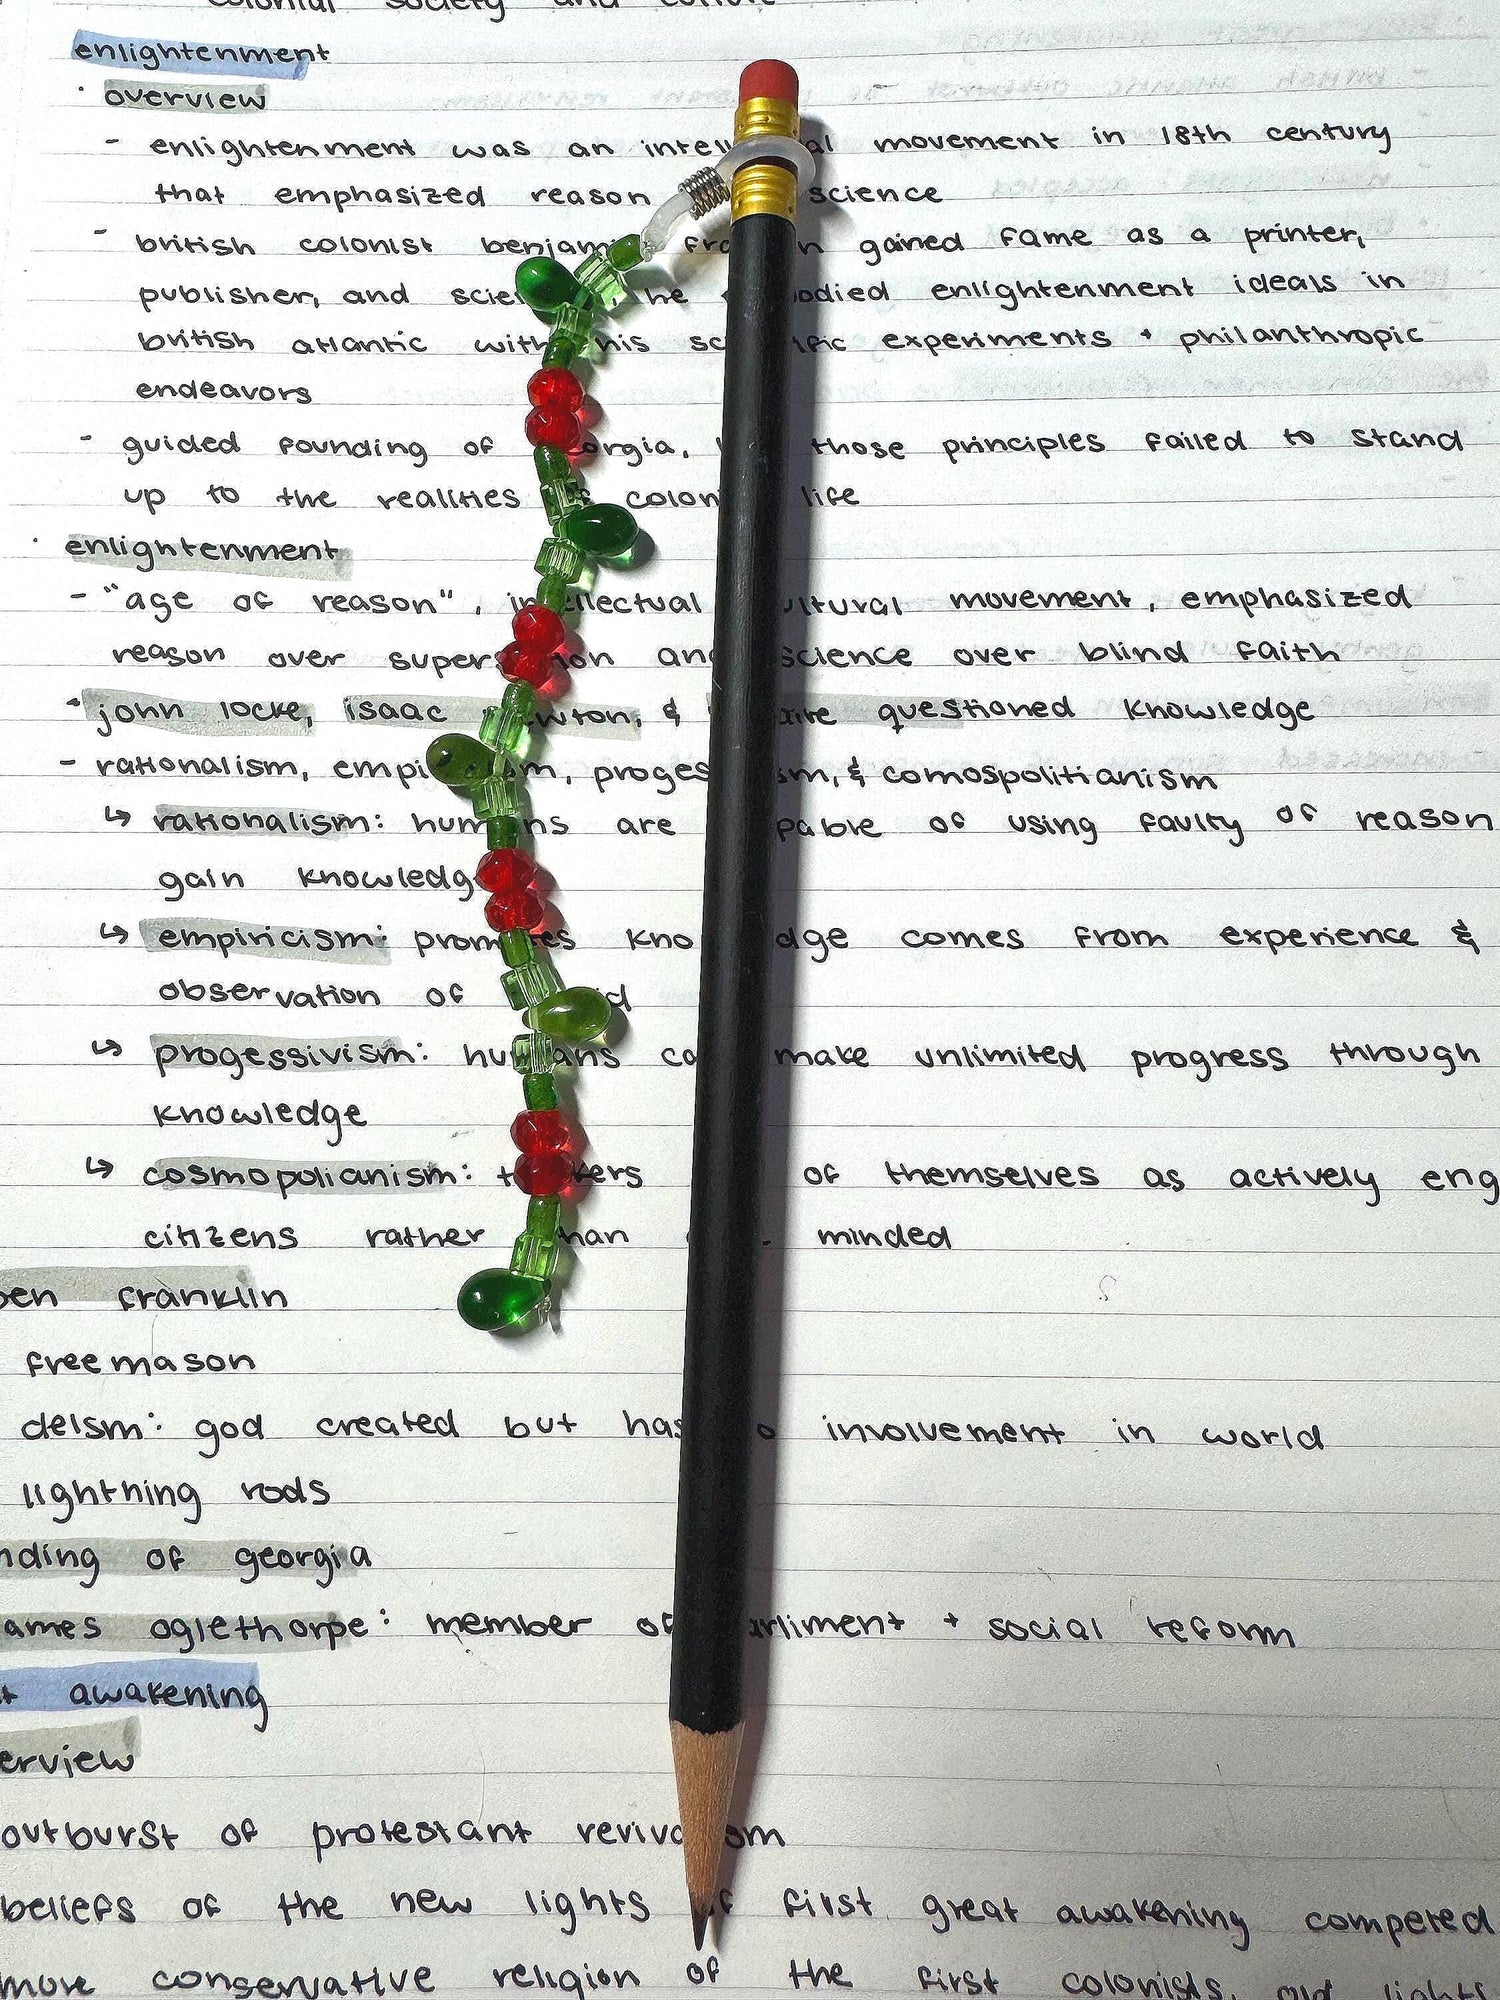 colonial society and culture
enlightenment
· overview
- enlightenment was an movement in 18th century
that emphasized reason science
- british colonist gained fame as a printer,
publisher, and he enlightenment ideals in
british atlantic with his experiments + philanthropic
endeavors
- guided founding of those principles failed to stand
up to the realities life
· enlightenment
- "age of reason", intellectual movement, emphasized
reason over and science over blind faith
· john locke, isaac & questioned knowledge
- rationalism, & comospolitianism
↳ rationalism: humans are of using faulty of reason
gain knowledge
↳ empiricism: comes from experience &
observation of
↳ progessivism: humans make unlimited progress through
knowledge
↳ cosmopolianism: of themselves as actively eng
citizens rather than minded
ben franklin
freemason
deism: god created but has involvement in world
lighthing rods
nding of georgia
ames oglethorpe: member of + social reform
t awakening
erview
outburst of protestant
beliefs of the new lights of first great awakening competed
more conservative religion of the first colonists. old lights